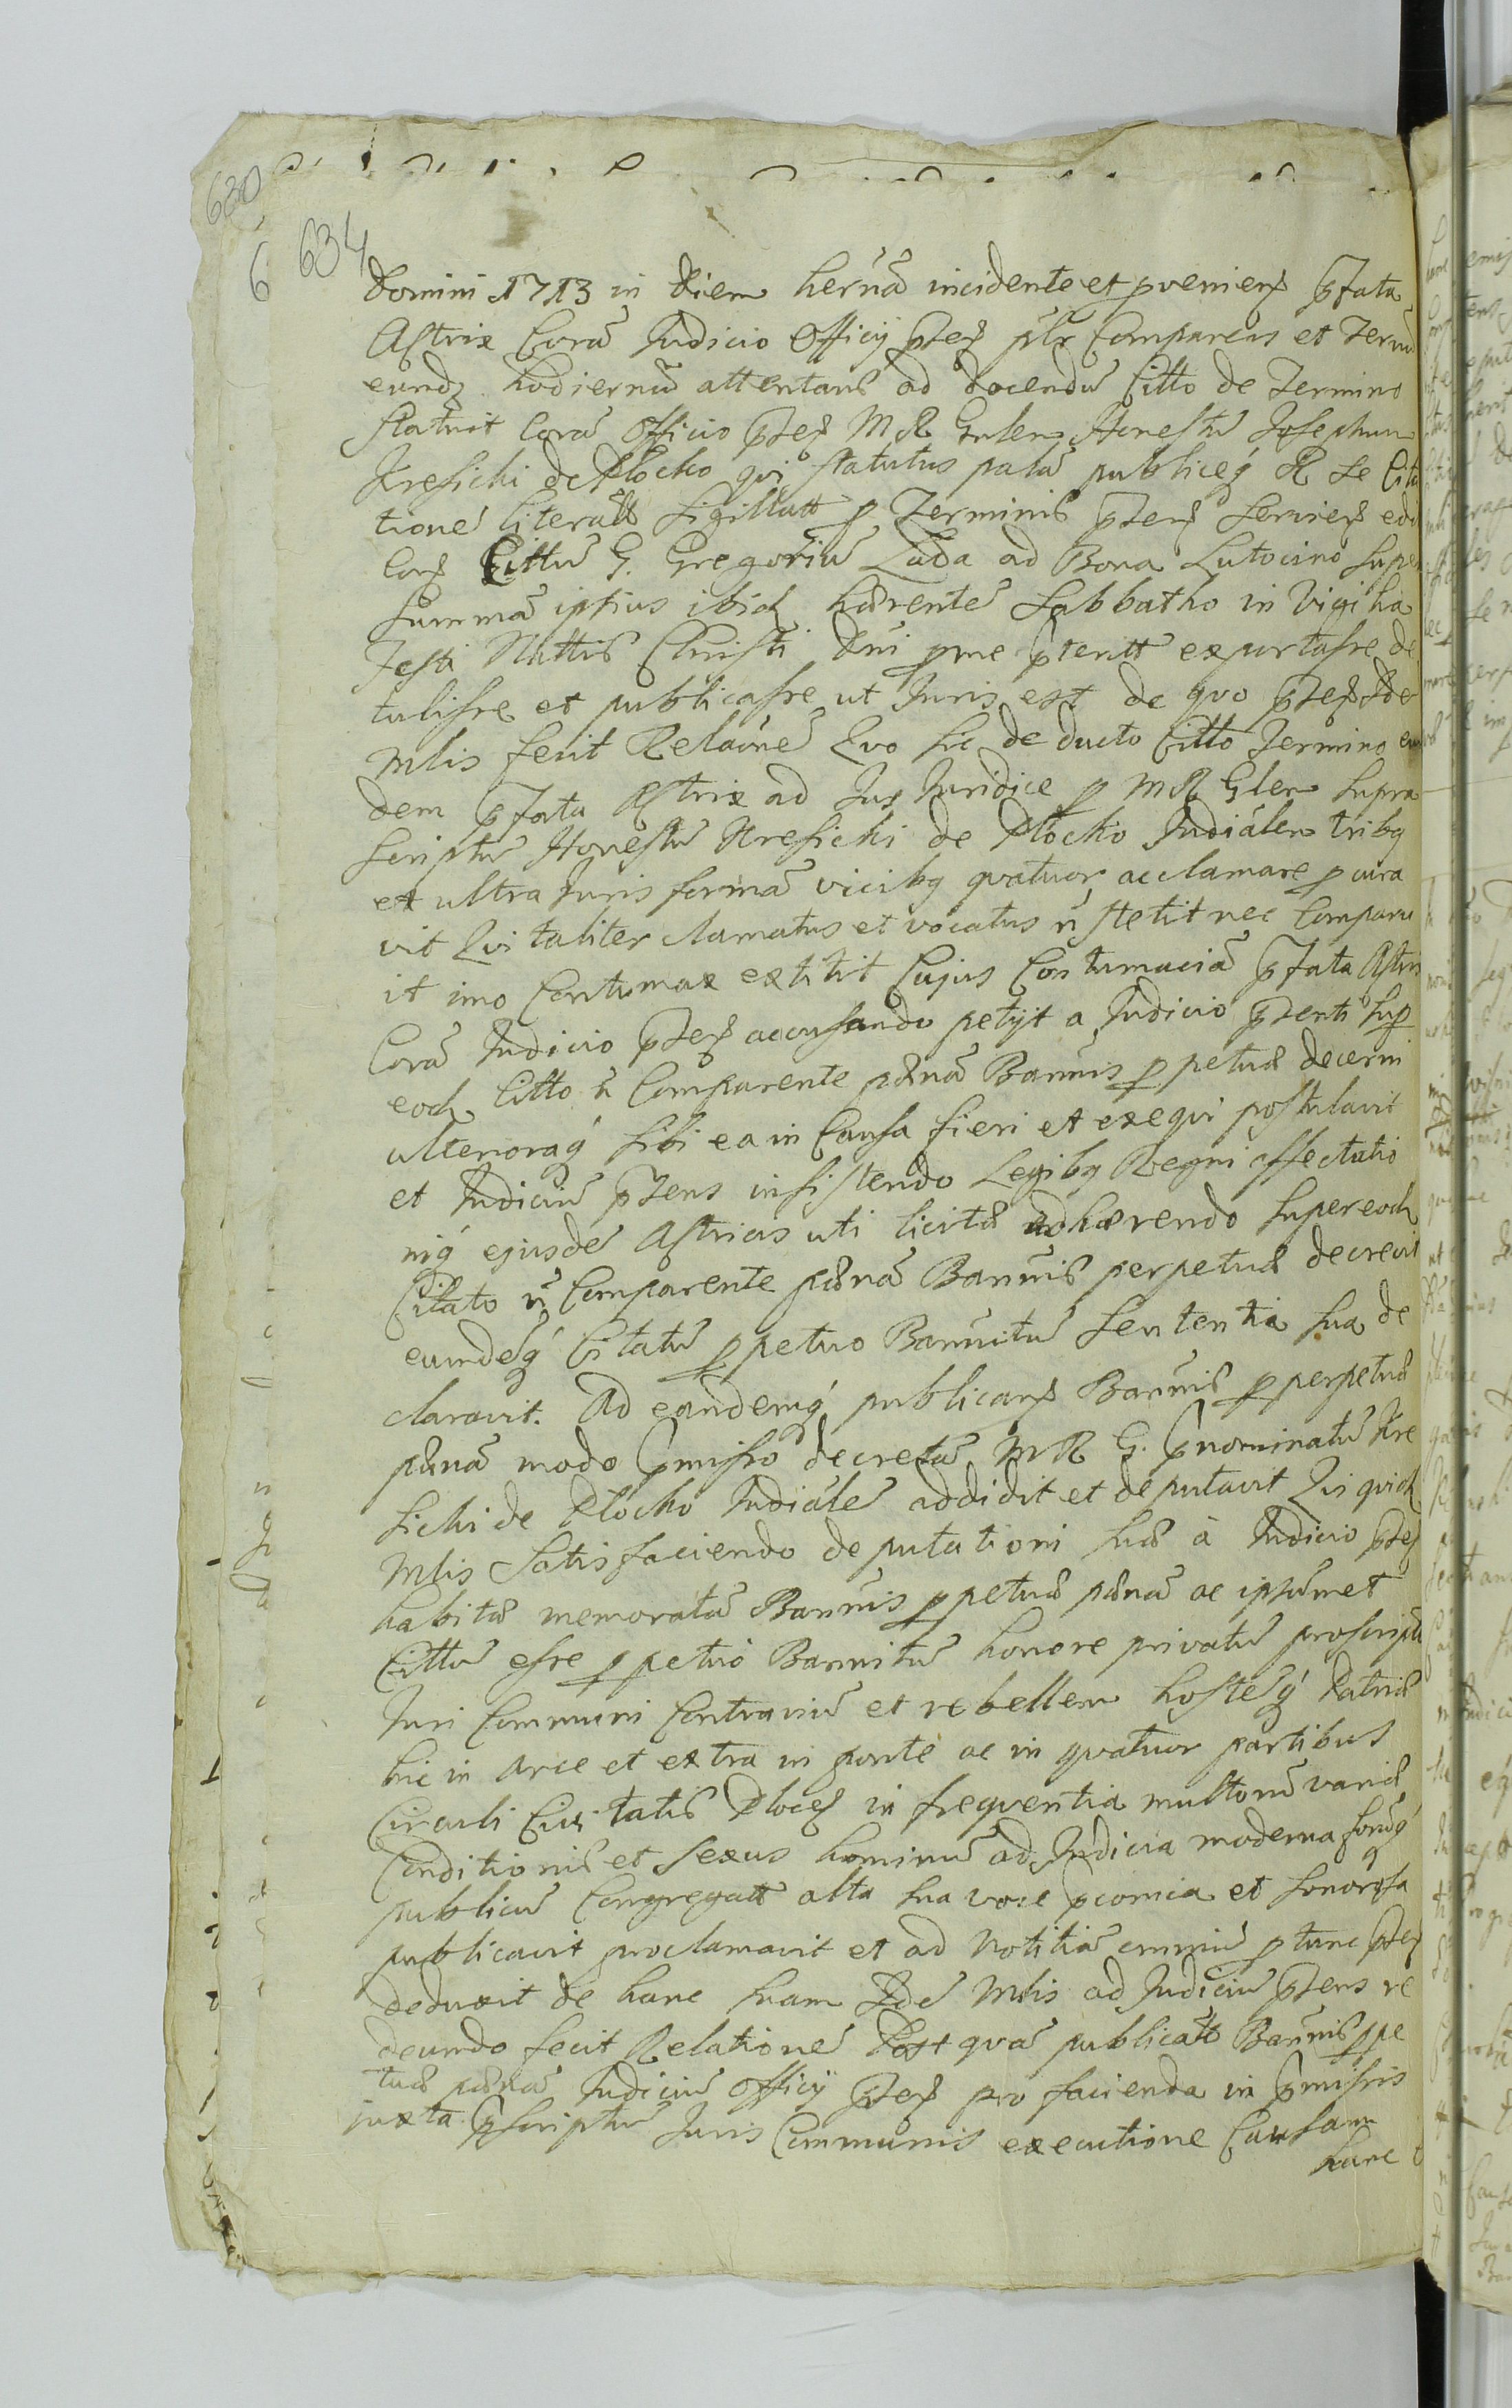 630
6 634
Domini 1713 in Diem hernã incidente et pveniens pfata
Actrix Corã Iudicio Officij pntes plr Comparens et Termũ
eund hodiernũ attentans ad docendũ Citto de Termino
statuit Corã Officio pntes M R Gnlem Honestũ Josephum
Kresicki de Plocko qvi statutus palã publiceq R se Cita
tione literali sigillatt p Terminis pntes servien edi
Cittũ G. Gregoriũ Lada ad Bona Lutocino super
summã ipsius ibid hærente Sabbatho in Vigilia
Festi Nttis Christi Dni pme ptentt exportasse de
tulisse et publicasse ut Iuris est de qvo pntes Ide
Mlis fecit Relacine Qvo sic de ducto Citto Termino eun
dem pfata Actrix ad Jus Iuridice p M R Glem supra
scriptũ Honestũ Kresicki de Plocko Iudialem tribg
et ultra Iuris formã vicibg qvatuor acclamare p cura
vit Qvi taliter clamatus et vocatus ñ stetit nec Comparu
it imo Contumax extitit Cujus Contumaciã pfata Actrix
Corã Iudicio pntes accusando petijt a Iudicio pntenti sup
eod Citto ñ Comparente pænã Bannis p petuæ decerni
ulterioraq sibi ea in Causa fieri et exeqvi postulavit
et Iudiciũ pntens insistendo Legibg Regni affectatio
niq ejusde Actricis uti licitæ adhærendo super eod
Citato ñ Comparente pænã Bannis perpetuæ decrevit
eumdeq Citatũ p petuo Bannitũ sententia sua de
claravit. Ad eandemq publicans Bannis p perpetuæ
pænã modo pmisso decretã M R G. pnominatũ Kre
sicki de Plocko Iudiale addidit et deputavit Qvi qvid
Mlis satisfaciendo deputationi suæ à Iudicio pntes
habitæ memoratã Bannis p petuæ pænã ac ipsũmet
Cittũ esse p petuo Bannitũ honore privatũ proscriptũ
Iuri Communi Contrariũ et rebellem hosteq Patriæ
hic in arce et extra in ponte ac in qvatuor partibus
Circuli Civitatis Plocens in freqventia multorũ variæ
Conditionis et sexus hominũ ad Iudicia moderna forũq
publicũ Congregatt alta sua voce pconica et sonorosa
publicavit proclamavit et ad notitiã omniũ ptunc pntes
deduxit de hanc suam Ide Mlis ad Iudiciũ pntens re
deundo fecit Relatione Post qvã publicatt Bannis ppe
tuæ pænã Iudiciũ Officij pntes pro facienda in pmissis
juxta pscriptũ Iuris Communis executione Causam
hanc